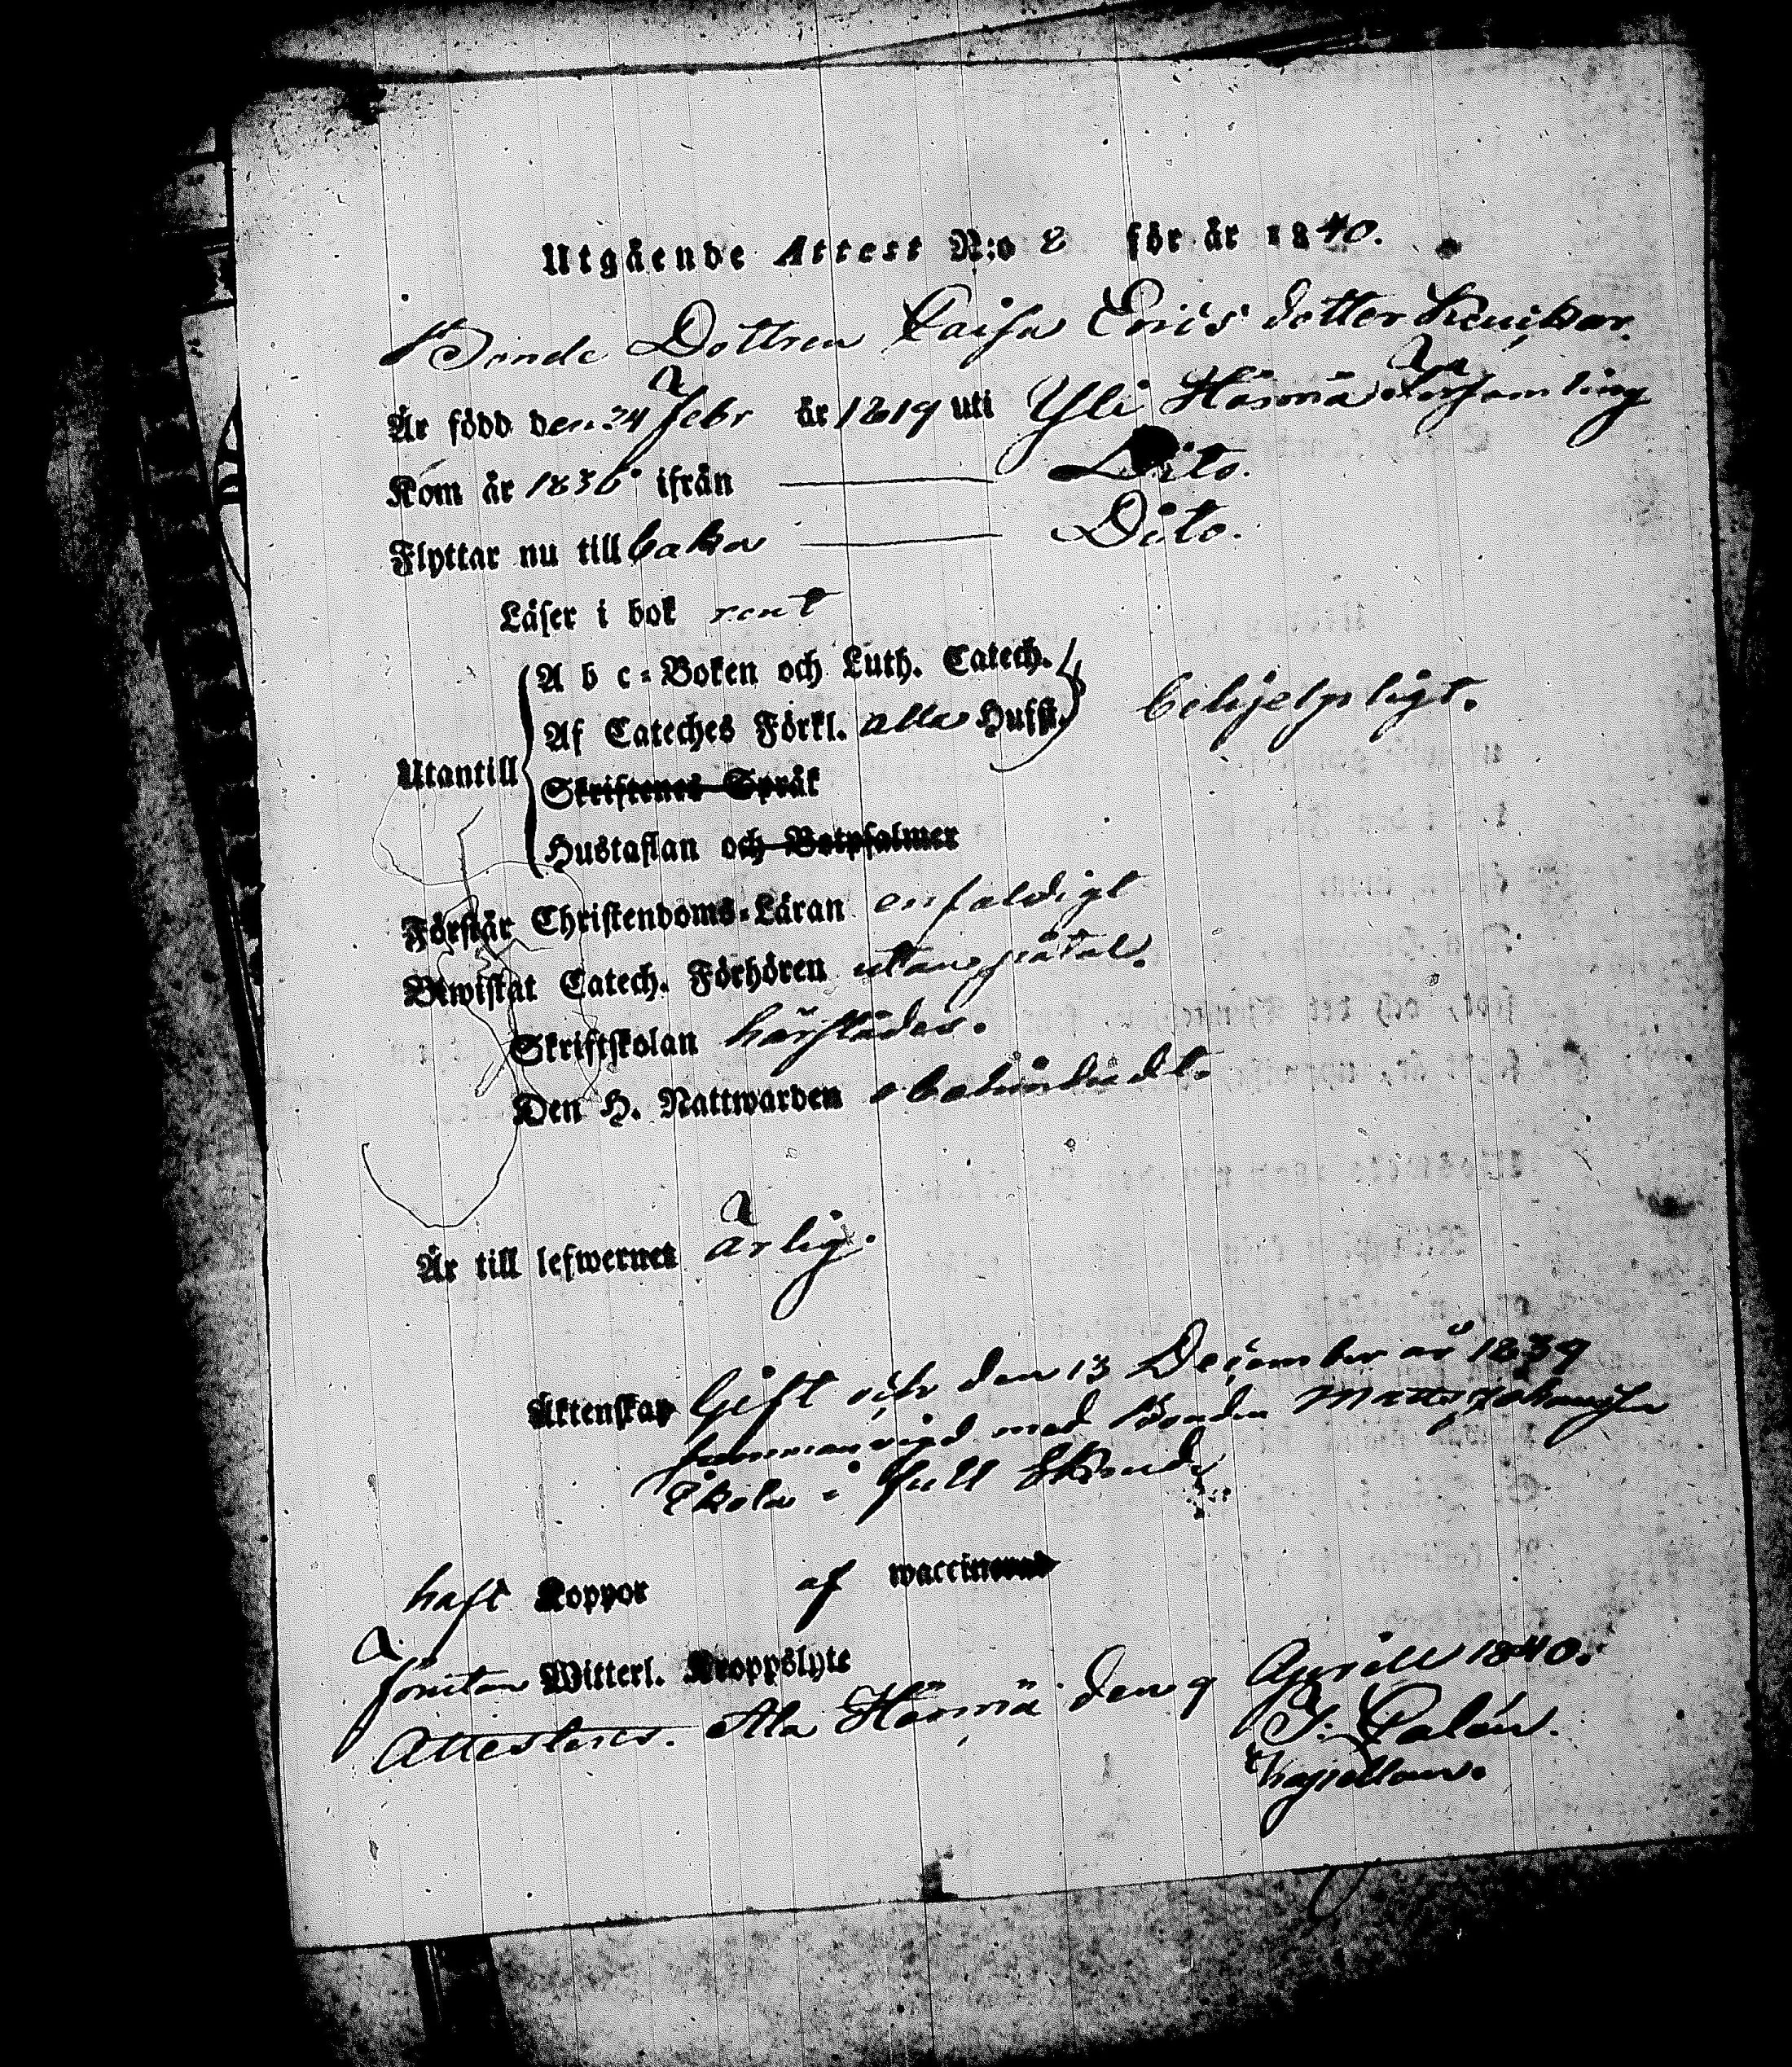 Utgående Attest N:o 8 för år 1840.
Bonde Dottren Caisa Erics dotter
Är född den 24 Febr år 1819 uti Yli Härmä Församling
Kom år 1836 ifrån Dito.
Flyttar nu till baka Dito.
Läser i bok rent
A b c-Boken och Luth. Catech.
Af Cateches Förkl. alla Hufst. behjelpligt.
Utantill
Skriftenes Språk
Hustaflan och Botpsalmer
Förstår Christendoms-Läran enfaldigt
Bewistat Catech. Förhören utan påtal.
Skriftskolan härstädes.
Den H. Nattwarden obehindradt.
Är till lefwernet ärlig.
Äktenskap Gift och den 13 December år 1839
sammanvigd med Bonden Matts Johansson
i full
haft Koppor af waccinerad
förutan Witterl. Kroppslyte
Attesteras. Ala Härmä den 9 Aprill 1840.
J. Palén.
Kapellan.